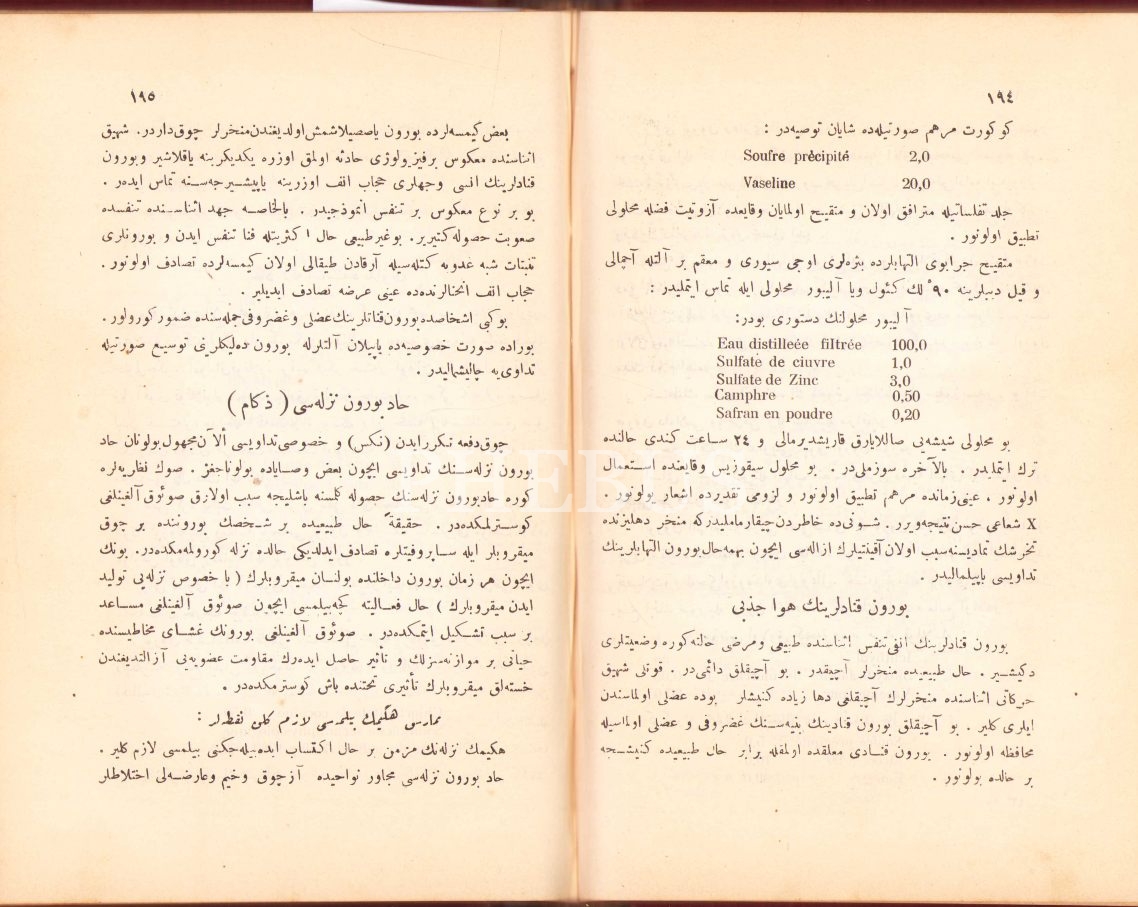 ١٩٤
كوكورت مرهم صورتيله‌ده شايان توصيه‌در :
Soufre précipité 2,0
Vaseline 20,0
جلد تفلساتيله مترافق اولان و متقيح اولمايان وقايعده آزوتيت فضله محلولى
تطبيق اولونور .
متقيح جرابوى التهابلرده بثره‌لرى اوجى سيورى و معقم بر آلتله آچمالى
و قيل ديبلرينه ٩٠° لك كئول ويا آليبور محلولى ايله تماس ايتمليدر :
آليبور محلولنك دستورى بودر:
Eau distilleée filtrée 100,0
Sulfate de ciuvre 1,0
Sulfate de Zinc 3,0
Camphre 0,50
Safran en poudre 0,20
بو محلولى شيشه‌يى صاللايارق قاريشديرمالى و ٢٤ ساعت كندى حالنده
ترك ايتمليدر . بالآخره سوزملى‌در . بو محلول سيقوزيس وقايعنده استعمال
اولونور ، عينى زمانده مرهم تطبيق اولونور و لزومى تقديرده اشعار يولونور .
X شعاعى حسن نتيجه‌ويرر . شونى‌ده خاطردن چيقارمامليدركه منخر دهليزنده
تخرشك تماديسنه‌سبب اولان آفيتلرك ازاله‌سى ايچون بهمه‌حال‌بورون التهابلرينك
تداويسى ياپيلماليدر .
بورون قنادلرينك هوا جذبى
بورون قنادلرينك انفى‌تنفس اثناسنده طبيعى ومرضى حالنه‌كوره وضعيتلرى
دكيشير . حال طبيعيده منخرلر آچيقدر . بو آچيقلق دائمى‌در . قوتلى شهيق
حركاتى اثناسنده منخرلرك آچيقلغى دها زياده كنيشلر بوده عضلى اولماسندن
ايلرى كلير . بو آچيقلق بورون قنادينك بنيه‌سنك غضروفى و عضلى اولماسيله
محافظه اولونور . بورون قنادى معلقده اولمغله برابر حال طبيعيده كنيشجه
بر حالده بولونور .
١٩٥
بعض كيمسه‌لرده بورون ياصصيلاشمش اولديغندن منخرلر چوق‌داردر. شهيق
اثناسنده معكوس برفيزيولوژى حادثه اولمق اوزره يكديكرينه ياقلاشير وبورون
قنادلرينك انسى وجهلرى حجاب انف اوزرينه ياپيشيرجه‌سنه تماس ايدر .
بو بر نوع معكوس بر تنفس انموذجيدر . بالخاصه جهد اثناسنده تنفسده
صعوبت حصوله‌كتيرير. بوغيرطبيعى حال اكثريتله فنا تنفس ايدن و بورونلرى
تنبتات شبه غدويه كتله‌سيله آرقادن طيقالى اولان كيمسه‌لرده تصادف اولونور .
حجاب انف انحنالرنده‌ده عينى عرضه تصادف ايديلير .
بوكبى اشخاصده‌بورون‌قناتلرينك‌عضلى وغضروفى جمله‌سنده ضموركورولور.
بوراده صورت خصوصيه‌ده ياپيلان آلتلرله بورون ده‌ليكلرينى توسيع صورتيله
تداوى‌يه چاليشماليدر .
حاد بورون نزله‌سى ( ذكام )
چوق‌دفعه تكررايدن (نكس) و خصوصى‌تداويسى الآن‌مجهول‌بولونان حاد
بورون نزله‌سنك تداويسى ايچون بعض وصاياده بولوناجغز . صوك نظريه‌لره
كوره حادبورون نزله‌سنك حصوله كلمسنه باشليجه سبب اولارق صوئوق آلغينلغى
كوسترلمكده‌در . حقيقةً حال طبيعيده بر شخصك بوروننده بر چوق
ميقروبلر ايله ساپروفيتلره تصادف ايدلديكى حالده نزله كورولمه‌مكده‌در. بونك
ايچون هر زمان بورون داخلنده بولنان ميقروبلرك ( با خصوص نزله‌يى توليد
ايدن ميقروبلرك ) حال فعاليته كچه‌بيلمسى ايچون صوئوق آلغينلغى مساعد
بر سبب تشكيل ايتمكده‌در . صوئوق آلغينلغى بورونك غشاى مخاطيسنده
حياتى بر موازنه‌سزلك و تأثير حاصل ايده‌رك مقاومت عضويه‌يى آزالتديغندن
خسته‌لق ميقروبلرك تأثيرى تحتنده باش كوسترمكده‌در .
ممارس هكيمك بيلمسى لازم كلن نقطه‌لر :
هكيمك نزله‌نك مزمن بر حال اكتساب ايده‌بيله‌جكنى بيلمسى لازم كلير .
حاد بورون نزله‌سى مجاور نواحيده آزچوق وخيم وعارضه‌لى اختلاطلر